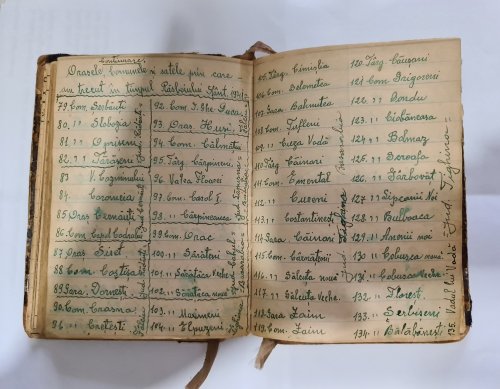 Continuare.
Orașele, comunele și satele prin care
au trecut în timpul Războiului Sfânt, 1941
79. Com. Șerbăuți
80. " Slobozia
81. " Oprișeni
82. " Tărășeni
83. " V. Cozminului
84. Coromeia
85. Oraș Cernăuți
86. Com. Carol Codrului
87. Oraș Siret
88. Com. Costișa
89. Gara. Dornești
90. Com. Craasna
91. " Crețești
92. Com. I. Ghe. Duca
93. Oraș. Huși.
94. Com. Călmățui
95. Târg. Cărpineni
96. Valea Floarei
97. Com. Carol I.
98. " Cărpineanca
99. Com. Orac
100. " Sărățeni
101. " Sărățica veche
102. " Sărățica nouă
103. " Maximeni
104. "
105. Târg. Cimișlia
106. Com. Selemetea
107. Gara Balmutea
108. Com. Fifleni
109. " Creța Vodă
110. Târg Căinari
111. Com. Emental
112. " Cusoni
113. " Constantinești
114. Gara Căinari
115. Com. Cârnățeni
116. " Sălcuța nuă
117. " Sălcuța Veche.
118. Gara Zaim
119. Com. Zaim
120. Târg Căușani
121. Com. Grigoreni
122. " Dordu
123. " Ciobăneasa
124. " Bâmaz
125. " Seroafa
126. " Fărbovăt
127. " Sipcanii Noi
128. " Bulboaca
129. " Anenii noi
130. " Cobusca nouă
131. " Cobusca Veche.
132. " Florești
133. " Șerbișeni
134. " Bălăbănești
135. Vadul lui Vodă
Jud. Tighina
Basarabia
Jud. Tighina